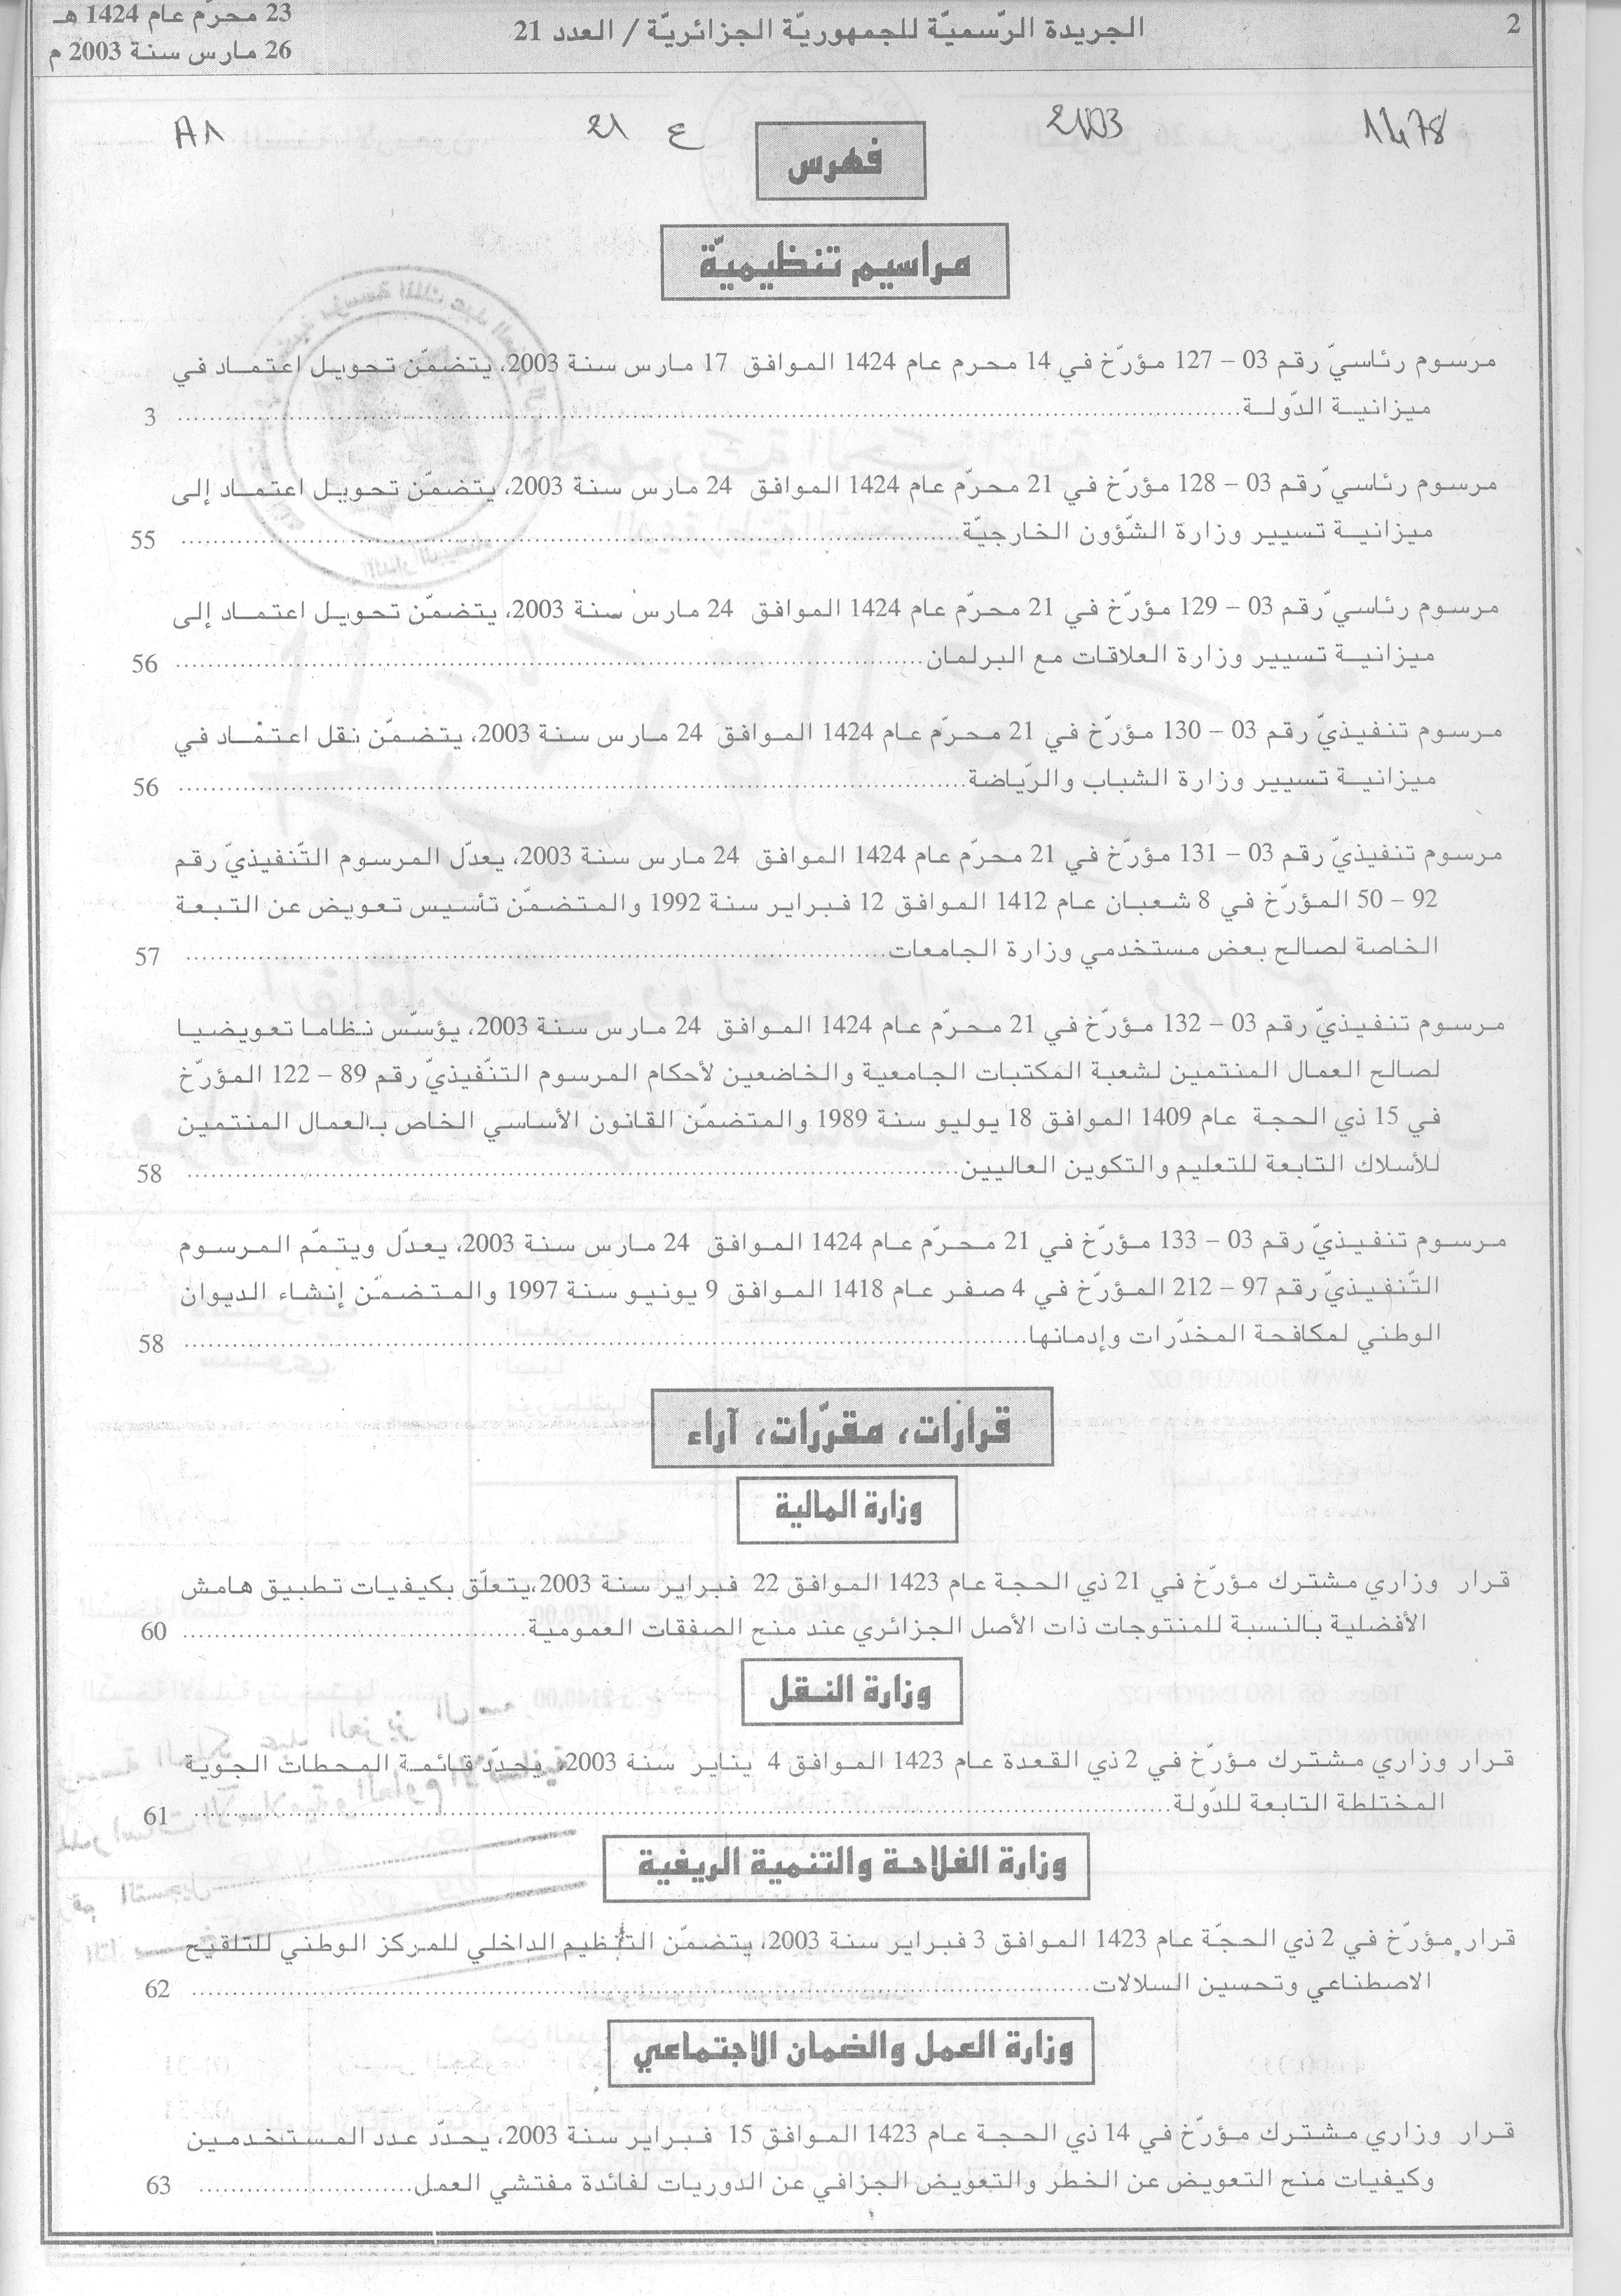 2
الجريدة الرّسميّة للجمهوريّة الجزائريّة / العدد 21
23 محرّم عام 1424 هـ
26 مارس سنة 2003 م
1478
2003
ع 21
A1
فهرس
مراسيم تنظيميّة
مرسوم رئاسيّ رقم 03 – 127 مؤرّخ في 14 محرم عام 1424 الموافق 17 مارس سنة 2003، يتضمّن تحويل اعتماد في
ميزانية الدّولة........................ 3
مرسوم رئاسيّ رقم 03 – 128 مؤرّخ في 21 محرّم عام 1424 الموافق 24 مارس سنة 2003، يتضمّن تحويل اعتماد إلى
ميزانية تسيير وزارة الشّؤون الخارجيّة........................ 55
مرسوم رئاسيّ رقم 03 – 129 مؤرّخ في 21 محرّم عام 1424 الموافق 24 مارس سنة 2003، يتضمّن تحويل اعتماد إلى
ميزانية تسيير وزارة العلاقات مع البرلمان........................ 56
مرسوم تنفيذيّ رقم 03 – 130 مؤرّخ في 21 محرّم عام 1424 الموافق 24 مارس سنة 2003، يتضمّن نقل اعتماد في
ميزانية تسيير وزارة الشباب والرّياضة........................ 56
مرسوم تنفيذيّ رقم 03 – 131 مؤرّخ في 21 محرّم عام 1424 الموافق 24 مارس سنة 2003، يعدّل المرسوم التّنفيذيّ رقم
92 – 50 المؤرّخ في 8 شعبان عام 1412 الموافق 12 فبراير سنة 1992 والمتضمّن تأسيس تعويض عن التبعة
الخاصة لصالح بعض مستخدمي وزارة الجامعات........................ 57
مرسوم تنفيذيّ رقم 03 – 132 مؤرّخ في 21 محرّم عام 1424 الموافق 24 مارس سنة 2003، يؤسّس نظاما تعويضيا
لصالح العمال المنتمين لشعبة المكتبات الجامعية والخاضعين لأحكام المرسوم التنّفيذيّ رقم 89 – 122 المؤرّخ
في 15 ذي الحجة عام 1409 الموافق 18 يوليو سنة 1989 والمتضمّن القانون الأساسي الخاص بالعمال المنتمين
للأسلاك التابعة للتعليم والتكوين العاليين........................ 58
مرسوم تنفيذيّ رقم 03 – 133 مؤرّخ في 21 محرّم عام 1424 الموافق 24 مارس سنة 2003، يعدّل ويتمّم المرسوم
التّنفيذيّ رقم 97 – 212 المؤرّخ في 4 صفر عام 1418 الموافق 9 يونيو سنة 1997 والمتضمّن إنشاء الديوان
الوطني لمكافحة المخدّرات وإدمانها........................ 58
قرارات، مقرّرات، آراء
وزارة المالية
قرار وزاري مشترك مؤرّخ في 21 ذي الحجة عام 1423 الموافق 22 فبراير سنة 2003،يتعلّق بكيفيات تطبيق هامش
الأفضلية بالنسبة للمنتوجات ذات الأصل الجزائري عند منح الصفقات العمومية........................ 60
وزارة النقل
قرار وزاري مشترك مؤرّخ في 2 ذي القعدة عام 1423 الموافق 4 يناير سنة 2003، يحدّد قائمة المحطات الجوية
المختلطة التابعة للدّولة........................ 61
وزارة الفلاحة والتنمية الريفية
قرار مؤرّخ في 2 ذي الحجّة عام 1423 الموافق 3 فبراير سنة 2003، يتضمّن التنظيم الداخلي للمركز الوطني للتلقيح
الاصطناعي وتحسين السلالات........................ 62
وزارة العمل والضمان الاجتماعي
قرار وزاري مشترك مؤرّخ في 14 ذي الحجة عام 1423 الموافق 15 فبراير سنة 2003، يحدّد عدد المستخدمين
وكيفيات منح التعويض عن الخطر والتعويض الجزافي عن الدوريات لفائدة مفتشي العمل........................ 63